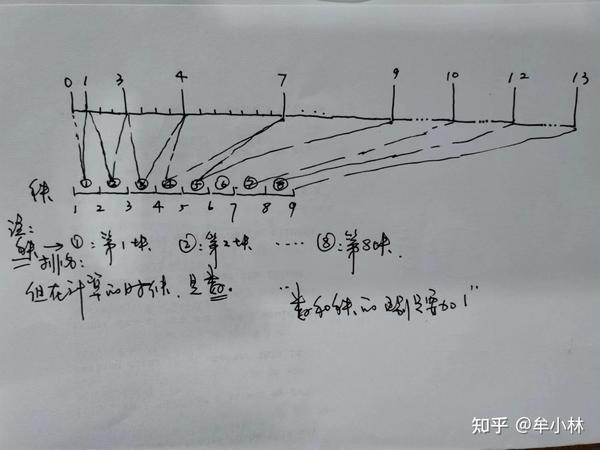 0 1 3 4 7 9 10 12 13
① ② ③ ④ ⑤ ⑥ ⑦ ⑧
1 2 3 4 5 6 7 8 9
注:
→ ①:第1块 ②:第2块 ···· ⑧:第8块.
但在计算的时候.是数。
知乎 @牟小林